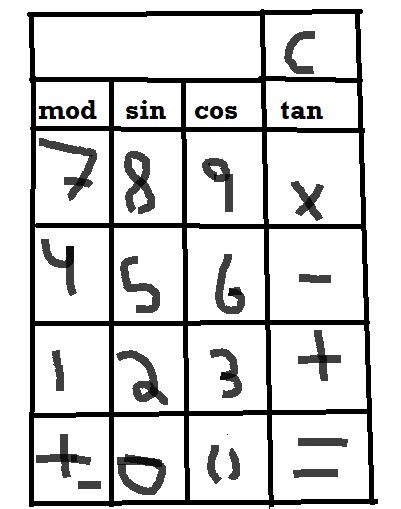 C
mod sin cos tan
7 8 9 x
4 5 6 -
1 2 3 +
+- 0 () =